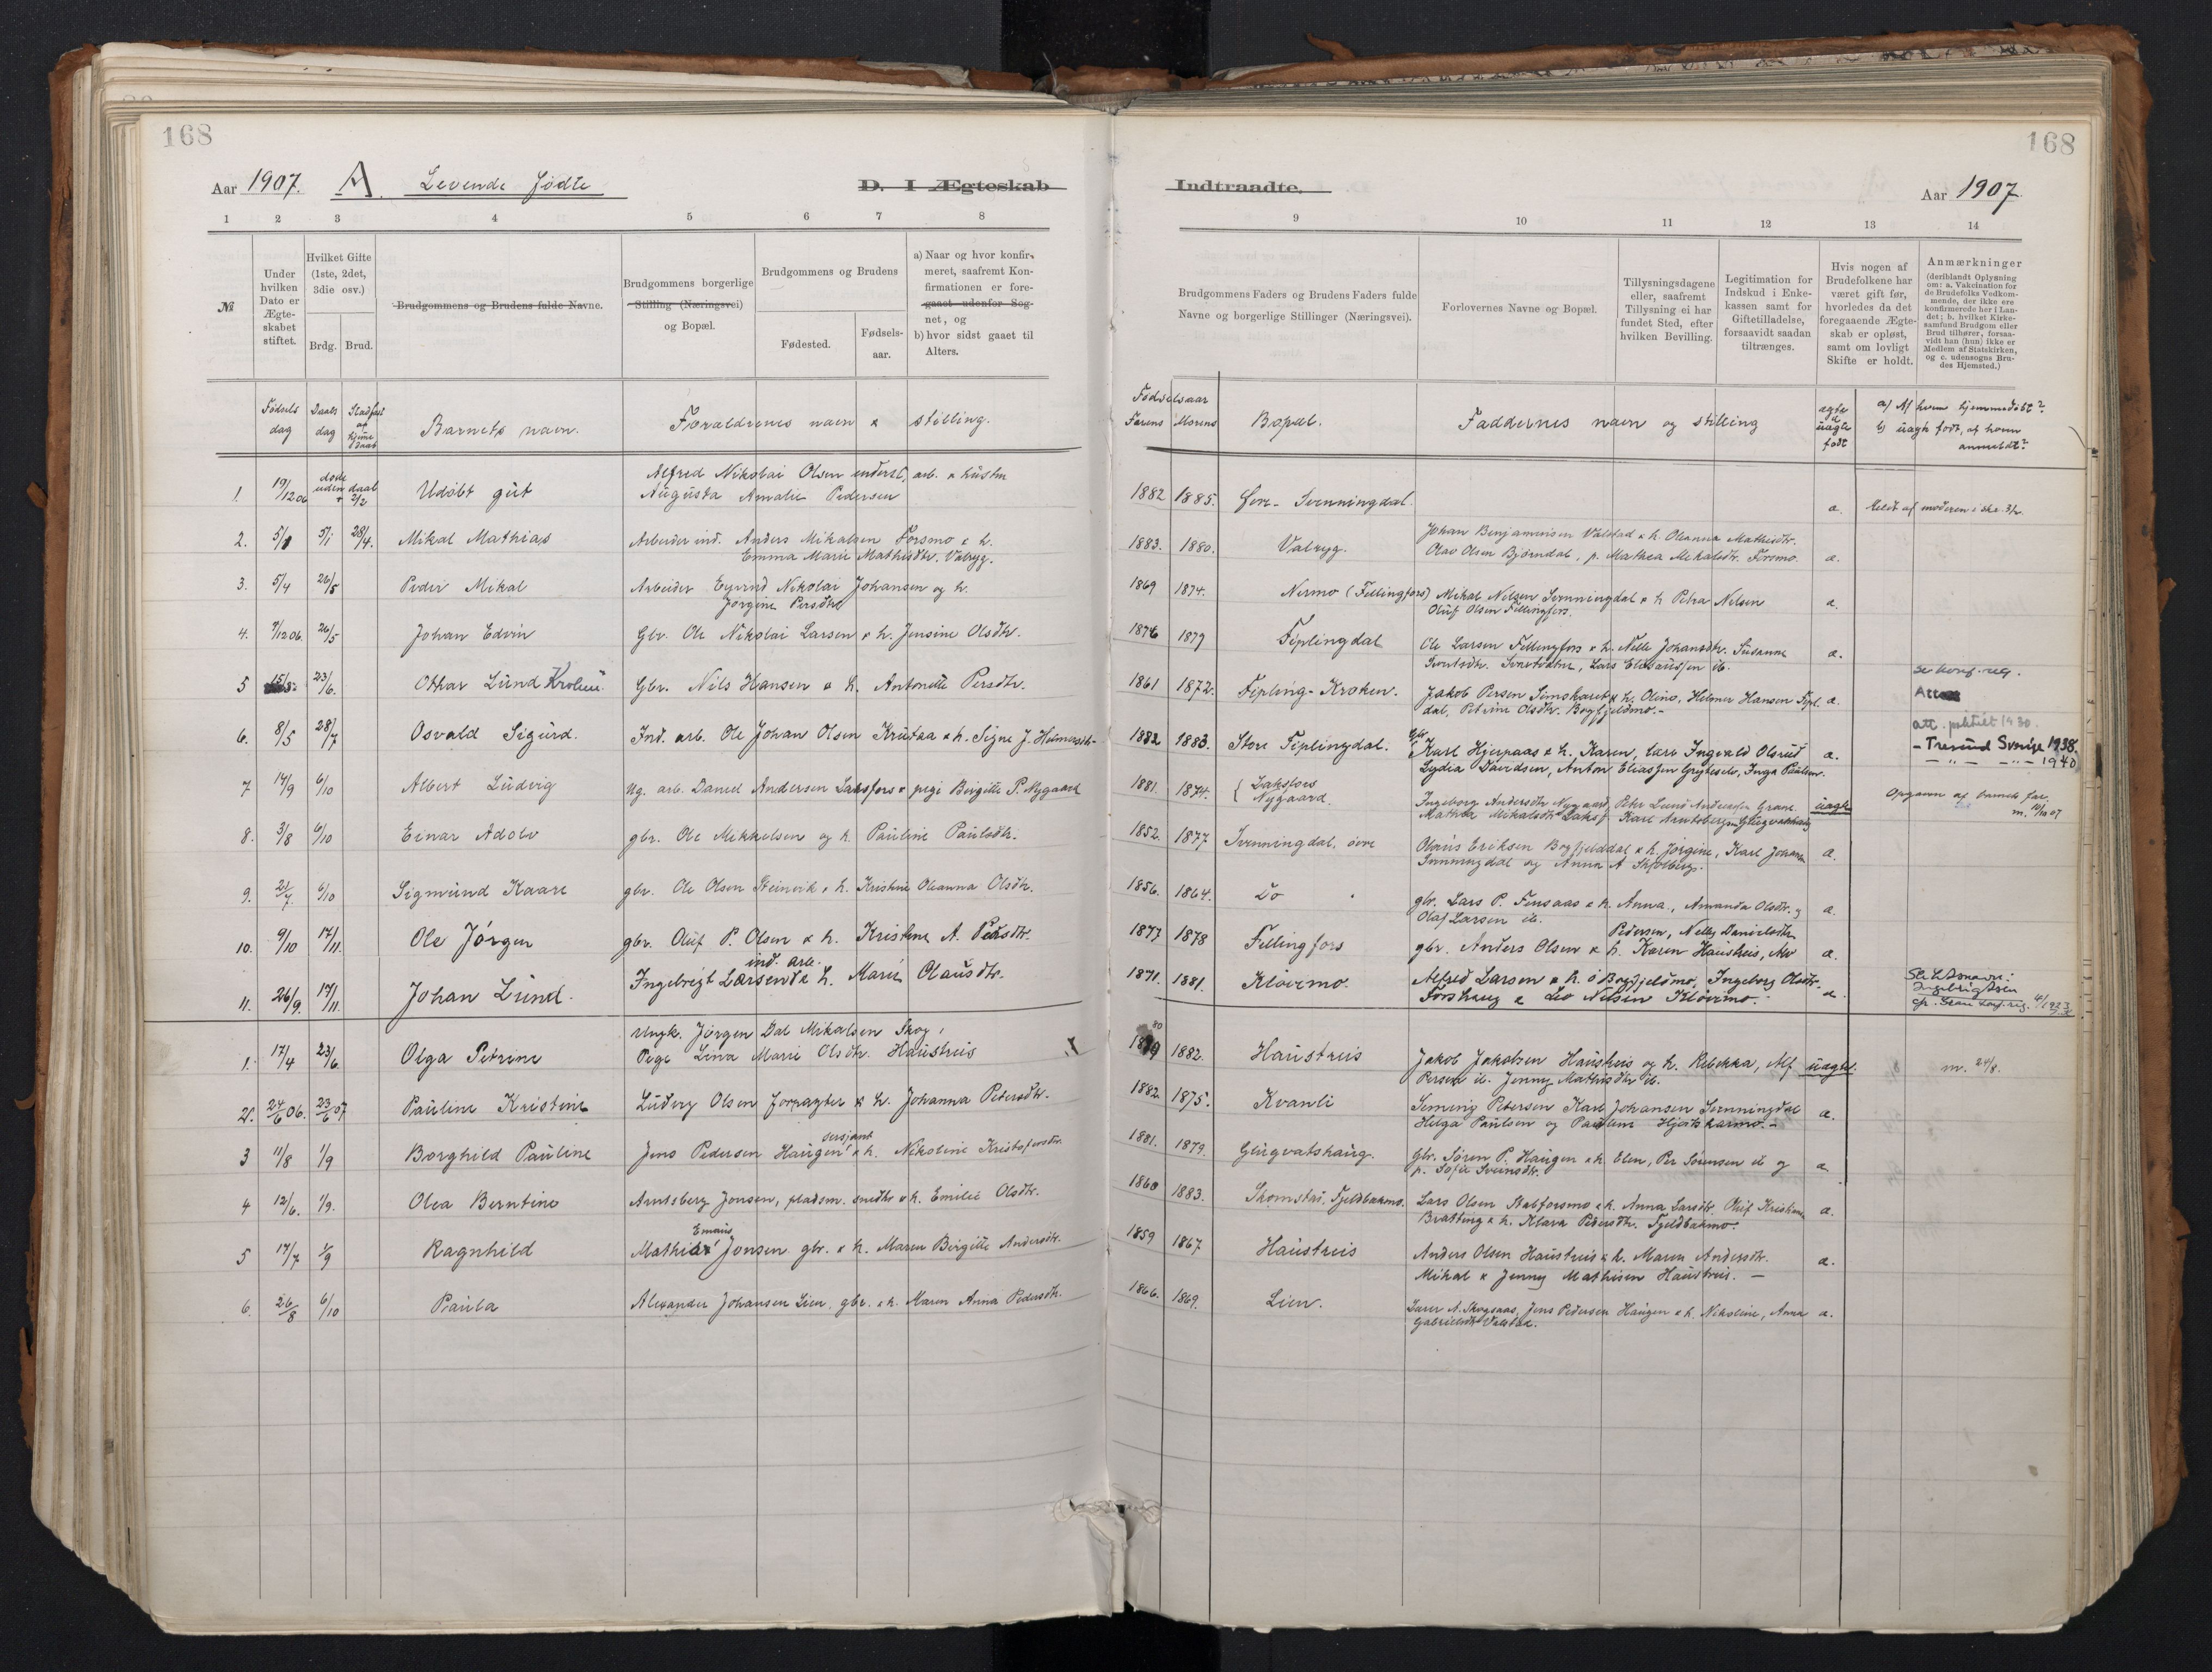 168
168
Aar 1907. A. Levende Fødte D. I Ægteskab
Indtraadte. Aar 1907.
1 2 3 4 5 6 7 8
9 10 11 12 13 14
№
Under hvilken Dato er Ægteskabet stiftet.
Hvilket Gifte (1ste, 2det, 3die osv.)
Brdg. Brud.
Brudgommens og Brudens fulde Navne.
Brudgommens borgerlige Stilling (Næringsvei) og Bopæl.
Brudgommens og Brudens
Fødested.
Fødsels-aar.
a) Naar og hvor konfirmeret, saafremt Konfirmationen er foregaaet udenfor Sognet, og
b) hvor sidst gaaet til Alters.
Brudgommens Faders og Brudens Faders fulde Navne og borgerlige Stillinger (Næringsvei).
Forlovernes Navne og Bopæl.
Tillysningsdagene eller, saafremt Tillysning ei har fundet Sted, efter hvilken Bevilling.
Legitimation for Indskud i Enkekassen samt for Giftetilladelse, forsaavidt saadan tiltrænges.
Hvis nogen af Brudefolkene har været gift før, hvorledes da det foregaaende Ægteskab er opløst, samt om lovligt Skifte er holdt.
Anmærkninger (deriblandt Oplysning om: a. Vakcination for de Brudefolks Vedkommende, der ikke ere konfirmerede her i Landet; b. hvilket Kirkesamfund Brudgom eller Brud tilhører, forsaavidt han (hun) ikke er Medlem af Statskirken, og c. udensogns Brudes Hjemsted.)
Fødselsdag Daabsdag Stadfæst af hjemedaab Barnets navn. Forældrenes navn & stilling.
Fødselsaar Farens Morens Bopæl. Faddernes navn og stilling ægte el. uægte født a) Af hvem hjemmedøbt? b) uægte født, af hvem anmeldt?
1. 19/12 06 døde uden daab 2/2 Udøbt gut Alfred Nikolai Olsen arb. & hustru
Augusta Amalie Pedersen 1882 1885. Øvre-Svenningdal. a. Meldt af moderen
2. 5/1 28/4. Mikal Mathias Arbeider ind. Anders Mikalsen Forsmo & h.
Emma Marie Mathisdtr. Valryg. 1883. 1880. Valryg. Johan Benjaminsen Valstad & h. Oleanna Mathisdtr.
Olav Olsen Bjørndal, p. Mathea Mikalsdtr. Forsmo. a.
3. 5/4 26/5 Peder Mikal Arbeider Eyvind Nikolai Johansen og h.
Jørgine Persdtr 1869 1874. Nermo (Fellingfors) Mikal Nilsen Svenningdal & h Petra Nilsen
Oluf Olsen Fellingfors. a.
4. 7/12 06. 26/5 Johan Edvin Gbr. Ole Nikolai Larsen & h. Jensine Olsdtr. 1876 1879 Fiplingdal Ole Larsen Fellingfors & h. Nelle Johansdtr. Susanne
Lars Eliasussen ib. a.
5 23/6. Othar Lund Gbr. Nils Hansen & h. Antonette Persdtr. 1861 1872. Fipling-Kroken. Jakob Persen Simskaret & h. Oline, Helmer Hansen Fipl.
dal, Petrine Olsdtr. Bogfjeldmo. - a. se konf. reg.
6. 8/5 28/7 Osvald Sigurd. Ind. arb. Ole Johan Olsen Krutaa & h. Signe J. Helmersdtr. 1882 1883. Store Fiplingdal. Karl Hjerpaas & h. Karen, Ingvald Olsrud
Lydia Davidsen, Anton Eliassen Grytselv, Inga Paulsen. a. att. 1930.
- Sverige 1938.
- " - - " - 1940
7 14/9 6/10 Albert Ludvig Ug. arb. Daniel Andersen Laksfors & pige Birgitte P. Nygaard 1881. 1874. { Laksfors
Nygaard. Ingeborg Andersdtr Nygaard, Peter Lund Andersen Grane.
Mathea Mikalsdtr Laksf. Karl Arntsberg Glugvatshaug uægte Opgaven af barnets far
m. 10/10 07
8. 3/8 6/10 Einar Adolv gbr. Ole Mikkelsen og h. Pauline Paulsdtr. 1852. 1877 Svenningdal, øvre Olaus Eriksen Bogfjelddal & h. Jørgine, Karl Johansen
Svenningdal og Anna A Skjolberg. a.
9. 21/7. 6/10 Sigmund Kaare gbr. Ole Olsen Steinvik & h. Kristine Oleanna Olsdtr. 1856. 1864. Do gbr. Lars P. Finsaas & h. Anna, Amanda Olsdtr. og
Olaf Larsen ib. a.
10. 9/10 17/11. Ole Jørgen gbr. Oluf P. Olsen & h. Kristine A. Pedersdtr. 1877 1878 Fellingfors Pedersen, Nelly Danielsdtr
gbr. Anders Olsen & h. Karen Haustreis, a.
11. 26/9. 17/11. Johan Lund. ind. arb.
Ingebregt Larsen & h. Marie Olausdtr. 1871. 1881. Kløvermo. Alfred Larsen & h. Bogfjeldmo, Ingeborg Olsdtr.
Forshaug & Leo Nilsen Kløvermo. a. Slektsnavn:
Ingebrigtsen
4/1923
1. 17/4 23/6. Olga Petrine Ungk. Jørgen Dal Mikalsen Skog,
Pige Lina Marie Olsdtr. Haustreis 1882. Haustreis Jakob Jakobsen Haustreis og h. Rebekka, Alf
Persen ib. Jenny Mathisdtr ib. uægte. m. 24/8.
2. 24/6 06. 23/6 07 Pauline Kristine Ludvig Olsen Forpagter & h. Johanna Petersdtr. 1882. 1875. Kvanli Petersen Karl Johansen Svenningdal
Helga Paulsen og Pauline Hjortskarmo. - a.
3 11/8 1/9 Borghild Pauline sersjant
Jens Pedersen Haugen & h. Nikoline Kristofersdtr 1881. 1879. Glugvatshaug. Gbr. Søren P. Haugen & h. Elen, Per Sørensen ib og
p. Sofie Sveinsdtr. a.
4 12/6. 1/9. Olea Berntine Arntsberg Jonsen, pladsm. & h. Emilie Olsdtr. 1860 1883. Fjeldbakmo. Lars Olsen Stabforsmo & h. Anna Larsdtr. Oluf Kristian
Bratting & h. Klara Pedersdtr. Fjeldbakmo. a.
5 17/7 1/9 Ragnhild Emaus
Mathias Jonsen gbr. & h. Maren Birgitte Andersdtr. 1859 1867 Haustreis Anders Olsen Haustreis & h. Maren Andersdtr.
Mikal & Jenny Mathisen Haustreis. - a.
6. 26/8 6/10 Paula Alexander Johansen Lien, gbr. & h. Maren Anna Pedersdtr. 1866. 1869. Lien. A. Skogsaas, Jens Pedersen Haugen & h. Nikoline, Anna
Gabrielsdtr Valstad. a.